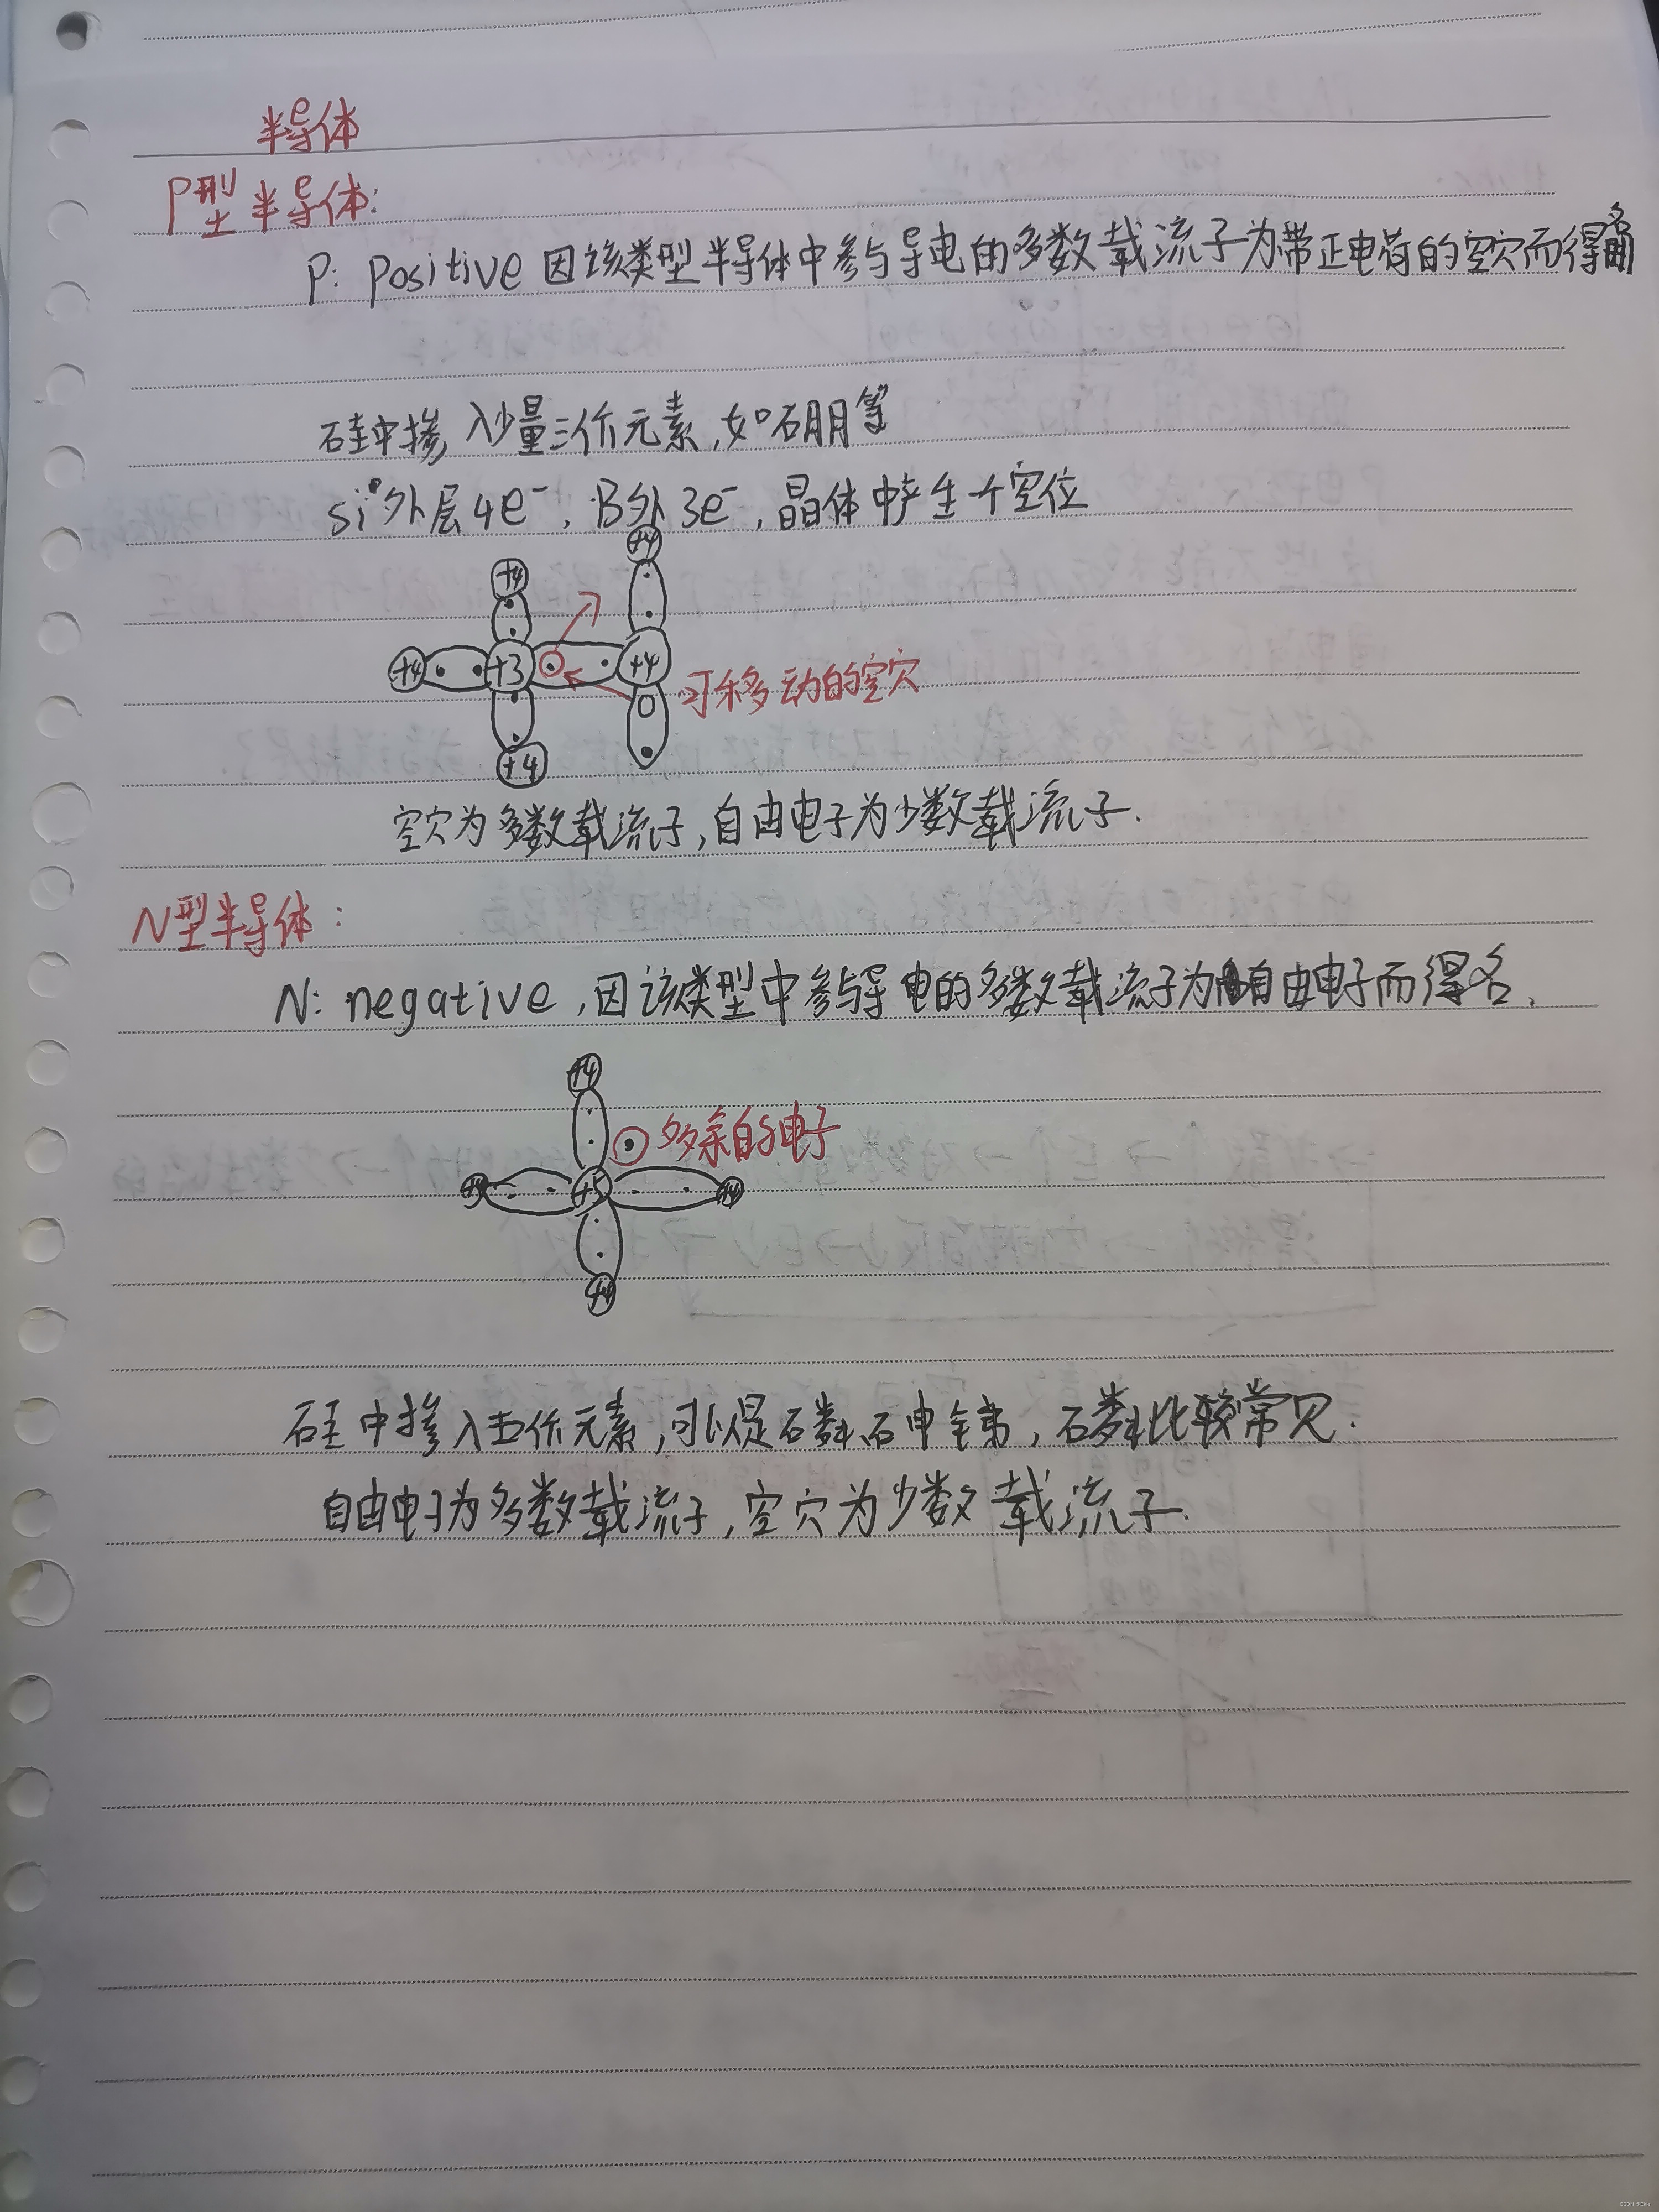 半导体
P型半导体:
P: positive 因该类型半导体中参与导电的多数载流子为带正电荷的空穴而得名
硅中掺入少量三价元素,如硼等
si外层4e⁻, B外3e⁻,晶体中产生一个空位
+4
+4
+4 +3 +4
可移动的空穴
+4
空穴为多数载流子,自由电子为少数载流子.
N型半导体:
N: negative,因该类型中参与导电的多数载流子为自由电子而得名.
+4
多余的电子
+4 +5 +4
+4
硅中掺入五价元素,可以是磷、砷锑,磷比较常见.
自由电子为多数载流子,空穴为少数载流子.